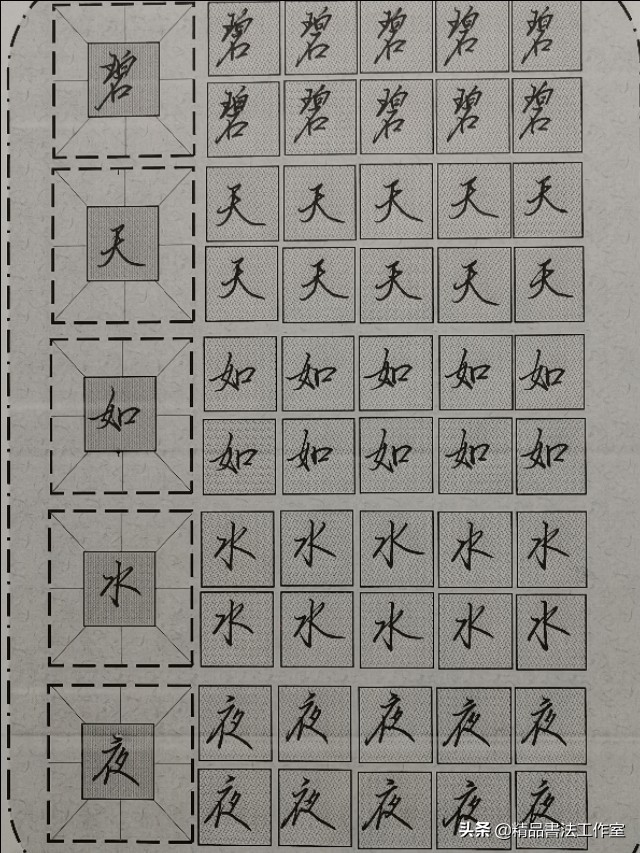 碧 碧 碧 碧 碧 碧
碧 碧 碧 碧 碧
天 天 天 天 天 天
天 天 天 天 天
如 如 如 如 如 如
如 如 如 如 如
水 水 水 水 水 水
水 水 水 水 水
夜 夜 夜 夜 夜 夜
夜 夜 夜 夜 夜
头条 @精品書法工作室